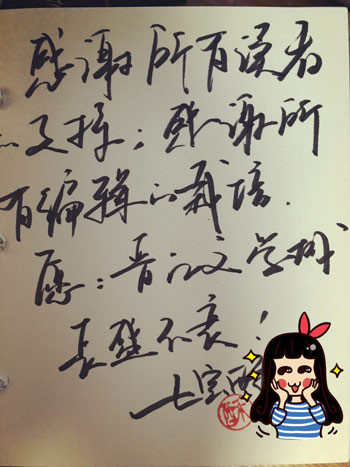 感谢所有读者
的支持；感谢所
有编辑的栽培.
愿：晋江文学城
长盛不衰！
七宝酥